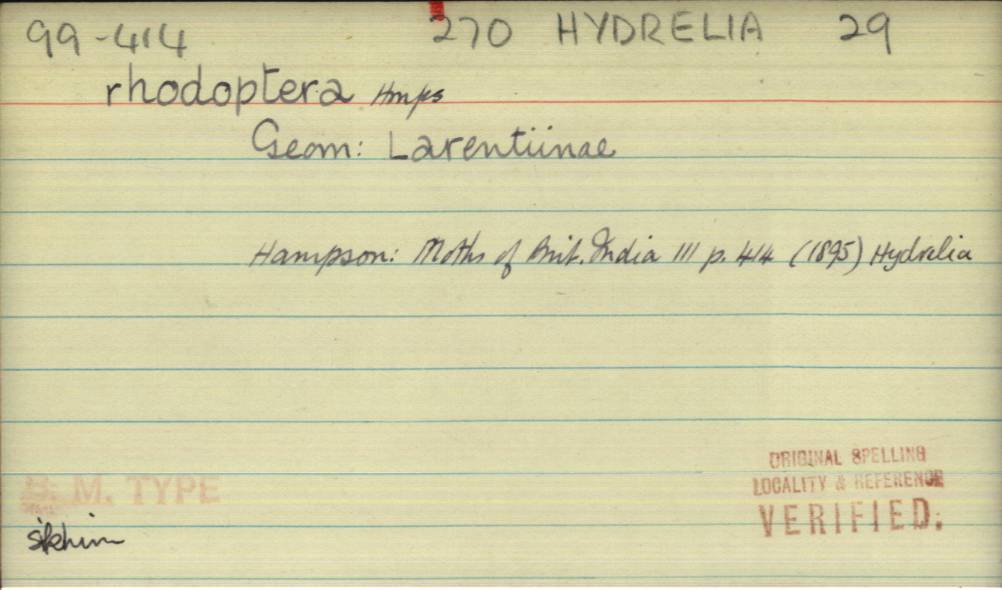 99-414 270 HYDRELIA 29
rhodoptera Hmps
Geom: Larentiinae
Hampson: Moths of Brit. India III p. 414 (1895) Hydrelia
ORIGINAL SPELLING
LOCALITY & REFERENCE
B. M. TYPE
VERIFIED.
Sikhim